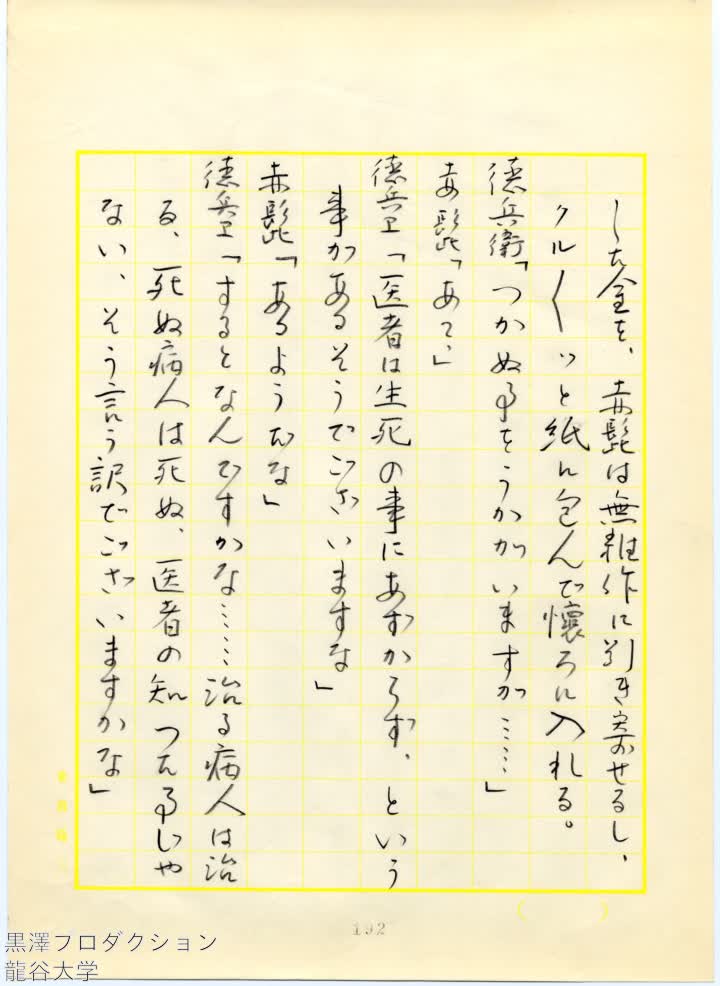 した金を、赤髭は無雑作に引き寄せるし、
クル〱ッと紙に包んで懐ろに入れる。
徳兵衛「つかぬ事をうかがいますが……」
赤髭「あゝ」
徳兵卫「医者は生死の事にあずからず、という
事があるそうでございますな」
赤髭「あるようだな」
徳兵卫「するとなんですかな……治る病人は治
る、死ぬ病人は死ぬ、医者の知つた事じや
ない、そう言う訳でございますかな」
192
黒澤プロダクション
龍谷大学